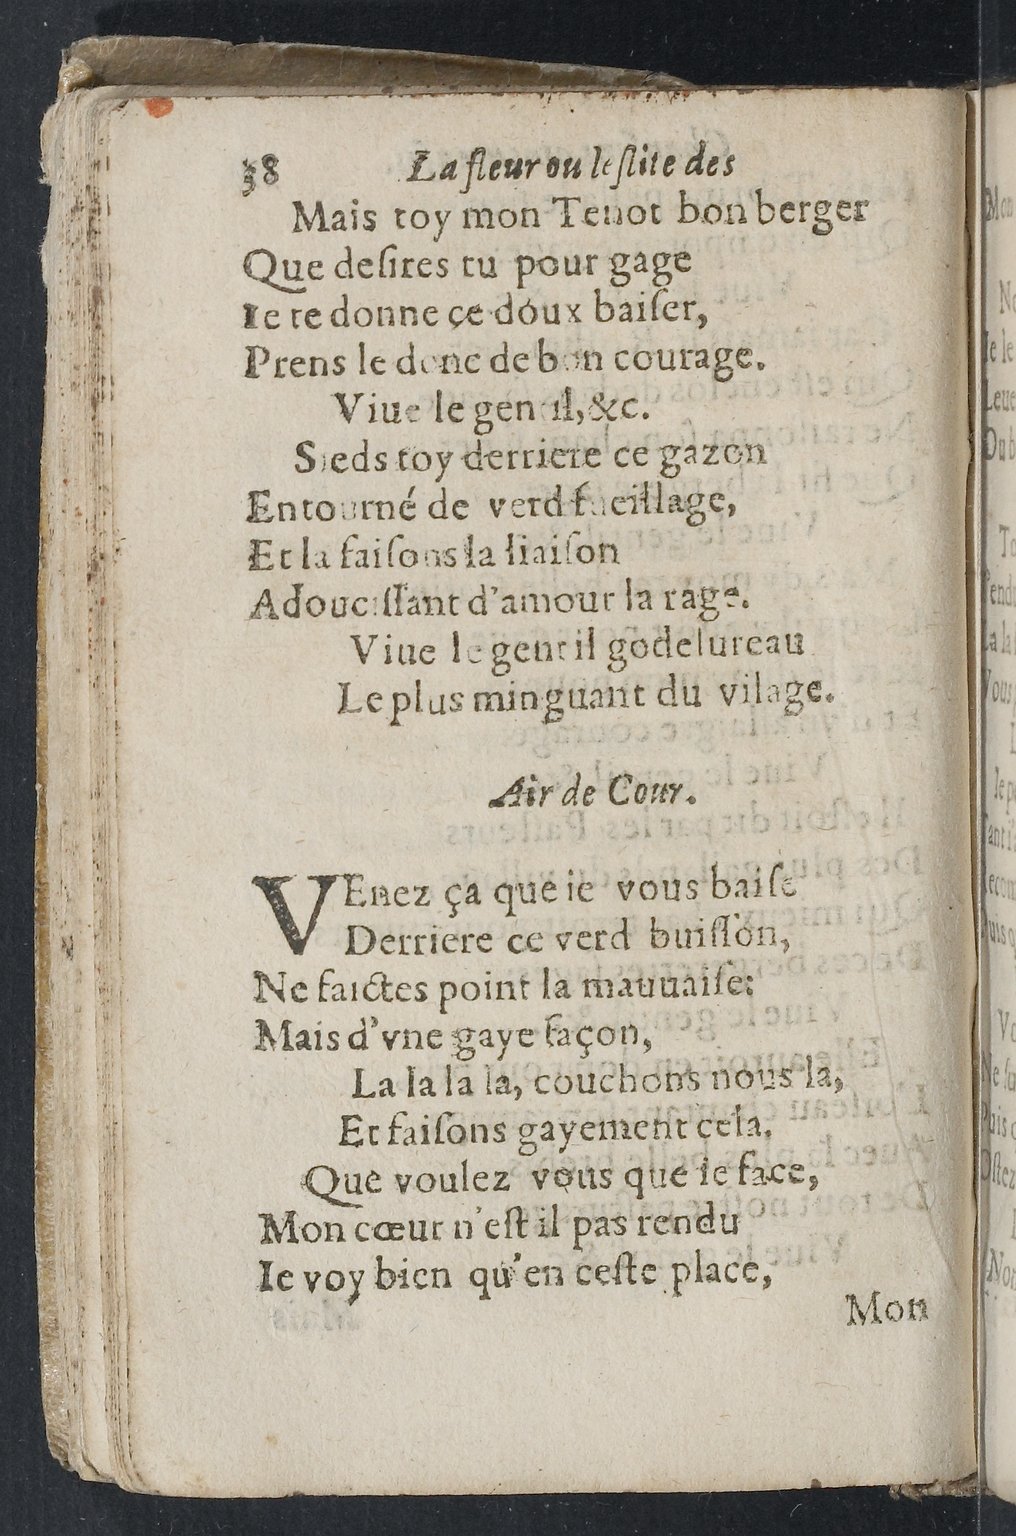 38 La fleur ou leſlite des
Mais toy mon Tenot bon berger
Que deſires tu pour gage
Ie te donne çe doux baiſer,
Prens le donc de bon courage.
Viue le gentil, &c.
Sieds toy derriere ce gazon
Entourné de verd fueillage,
Et la faiſons la liaiſon
Adouciſſant d'amour la rage.
Viue le gentil godelureau
Le plus minguant du vilage.
Air de Cour.
VEnez ça que ie vous baiſe
Derriere ce verd buiſſon,
Ne faictes point la mauuaiſe:
Mais d'vne gaye façon,
La la la la, couchons nous la,
Et faiſons gayement cela.
Que voulez vous que ie face,
Mon cœur n'eſt il pas rendu
Ie voy bien qu'en ceſte place,
Mon